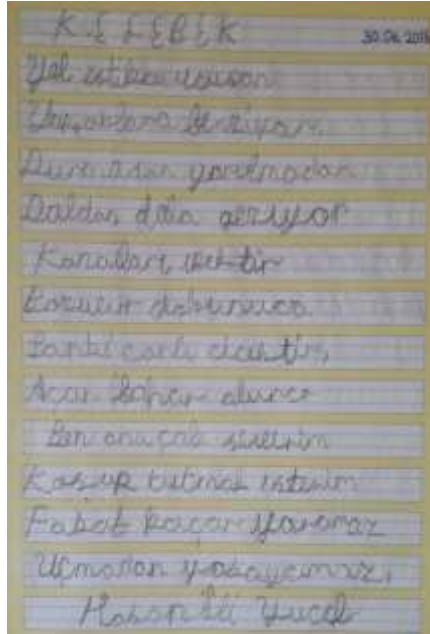 KELEBEK 30.06.2015
Yel estikçe uçuşan
Yapraklara benziyor.
Durmadan yorulmadan
Daldan dala geziyor
Kanatları
dokununca
Sanki canlı çiçektir,
Açar bahar olunca
Ben onu çok severim
Koşup tutmak isterim
Fakat kaçar yaramaz
Uçmadan yaşayamaz.
Hasan Ali Yücel